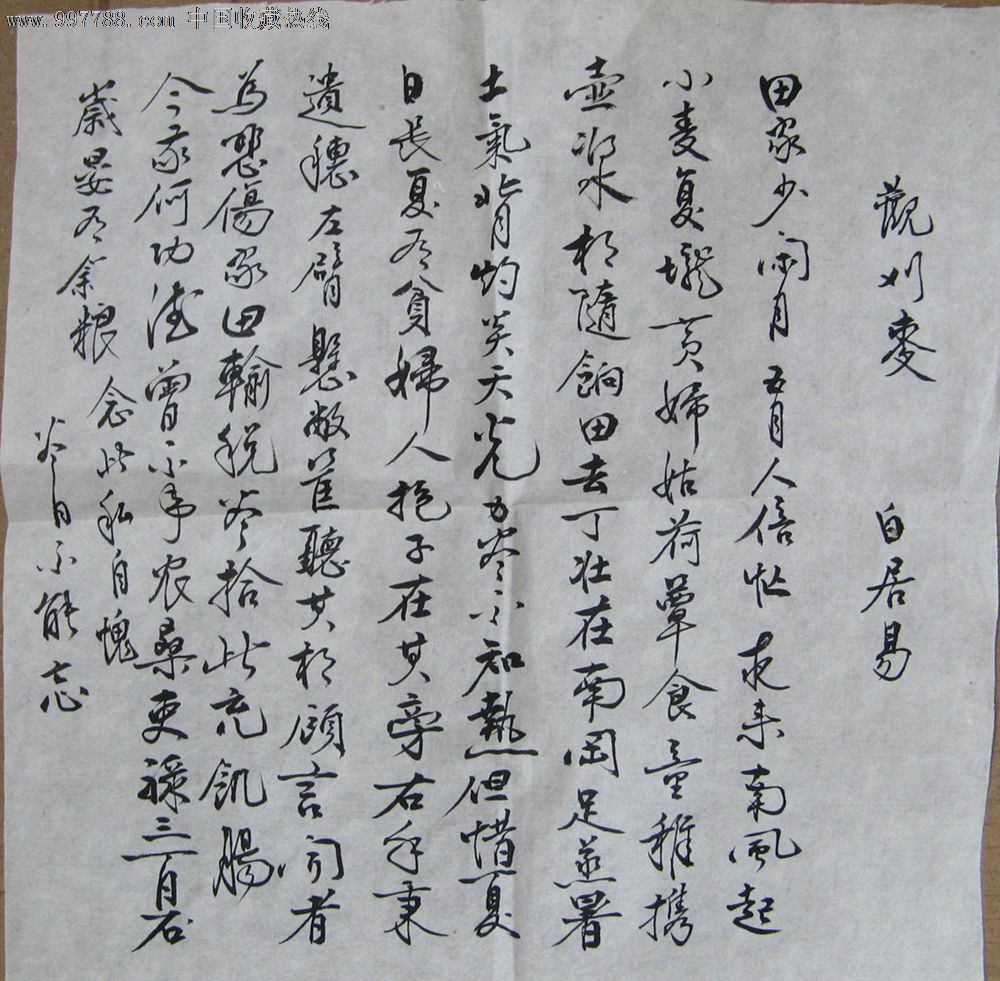 www.997788.com 中国收藏热线
觀刈麥 白居易
田家少闲月五月人倍忙夜来南風起
小麦复壠黄婦姑荷簞食童稚携
壶漿相隨餉田去丁壮在南岡足蒸暑
土氣背灼炎天光力尽不知熱但惜夏
日長夏有貧婦人抱子在其旁右手秉
遺穗左臂懸敝筐聽其相顧言闻者
為悲傷家田輸税尽拾此充飢腸
今我何功德曾不事农桑吏禄三百石
歲晏有余粮念此私自愧
尽日不能忘